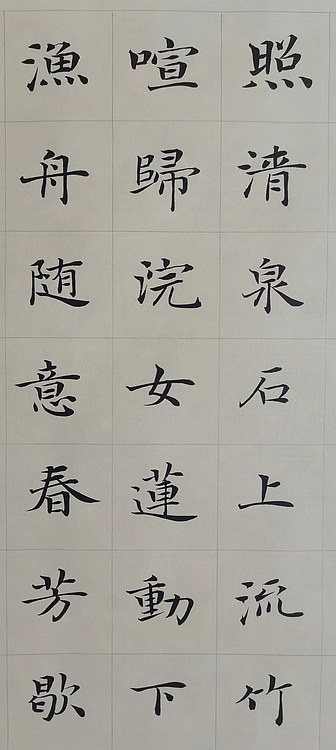 照清泉石上流竹
喧歸浣女蓮動下
漁舟随意春芳歇